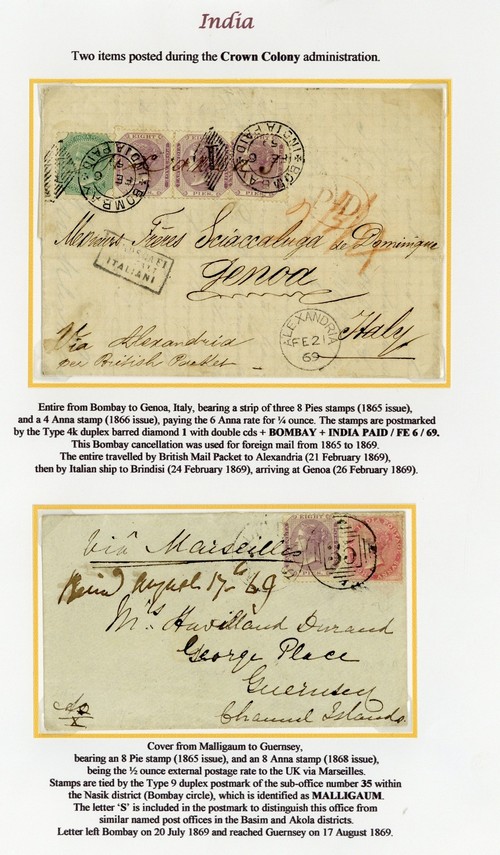 India
Two items posted during the Crown Colony administration.
EIGHT
PIES
BOMBAY
INDIA PAID
FE
6
BOMBAY
INDIA PAID
FE
6
Messieurs Frères Sciaccaluga de Domenique
Genoa
ITALIANI
Italy
ALEXANDRIA
FE 21
69
Via Alexandria
per British Packet
Entire from Bombay to Genoa, Italy, bearing a strip of three 8 Pies stamps (1865 issue),
and a 4 Anna stamp (1866 issue), paying the 6 Anna rate for ¼ ounce. The stamps are postmarked
by the Type 4k duplex barred diamond 1 with double cds + BOMBAY + INDIA PAID / FE 6 / 69.
This Bombay cancellation was used for foreign mail from 1865 to 1869.
The entire travelled by British Mail Packet to Alexandria (21 February 1869),
then by Italian ship to Brindisi (24 February 1869), arriving at Genoa (26 February 1869).
Via Marseilles
EIGHT
35
August 17th 69
Mrs Havilland Durand
George Place
Guernsey
Channel Islands
Cover from Malligaum to Guernsey,
bearing an 8 Pie stamp (1865 issue), and an 8 Anna stamp (1868 issue),
being the ½ ounce external postage rate to the UK via Marseilles.
Stamps are tied by the Type 9 duplex postmark of the sub-office number 35 within
the Nasik district (Bombay circle), which is identified as MALLIGAUM.
The letter ‘S’ is included in the postmark to distinguish this office from
similar named post offices in the Basim and Akola districts.
Letter left Bombay on 20 July 1869 and reached Guernsey on 17 August 1869.